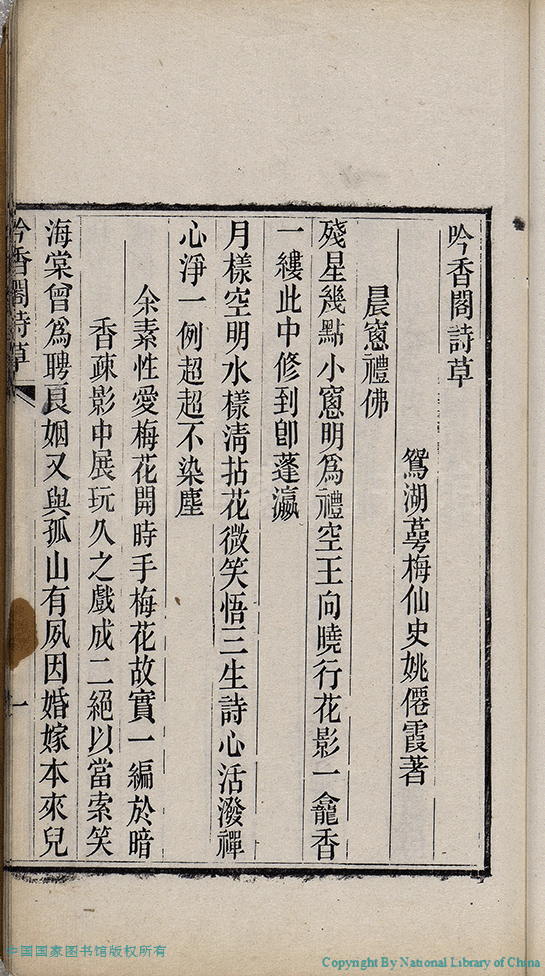 吟香閣詩草
鴛湖萼梅仙史姚僊霞著
晨窻禮佛
殘星幾點小窻明爲禮空王向曉行花影一龕香
一縷此中修到卽蓬瀛
月樣空明水樣清拈花微笑悟三生詩心活潑禪
心淨一例超超不染塵
余素性愛梅花開時手梅花故實一編於暗
香疎影中展玩久之戲成二絕以當索笑
海棠曾爲聘良姻又與孤山有夙因婚嫁本來兒
吟香閣詩草
一
中国国家图书馆版权所有
Copyright By National Library of China